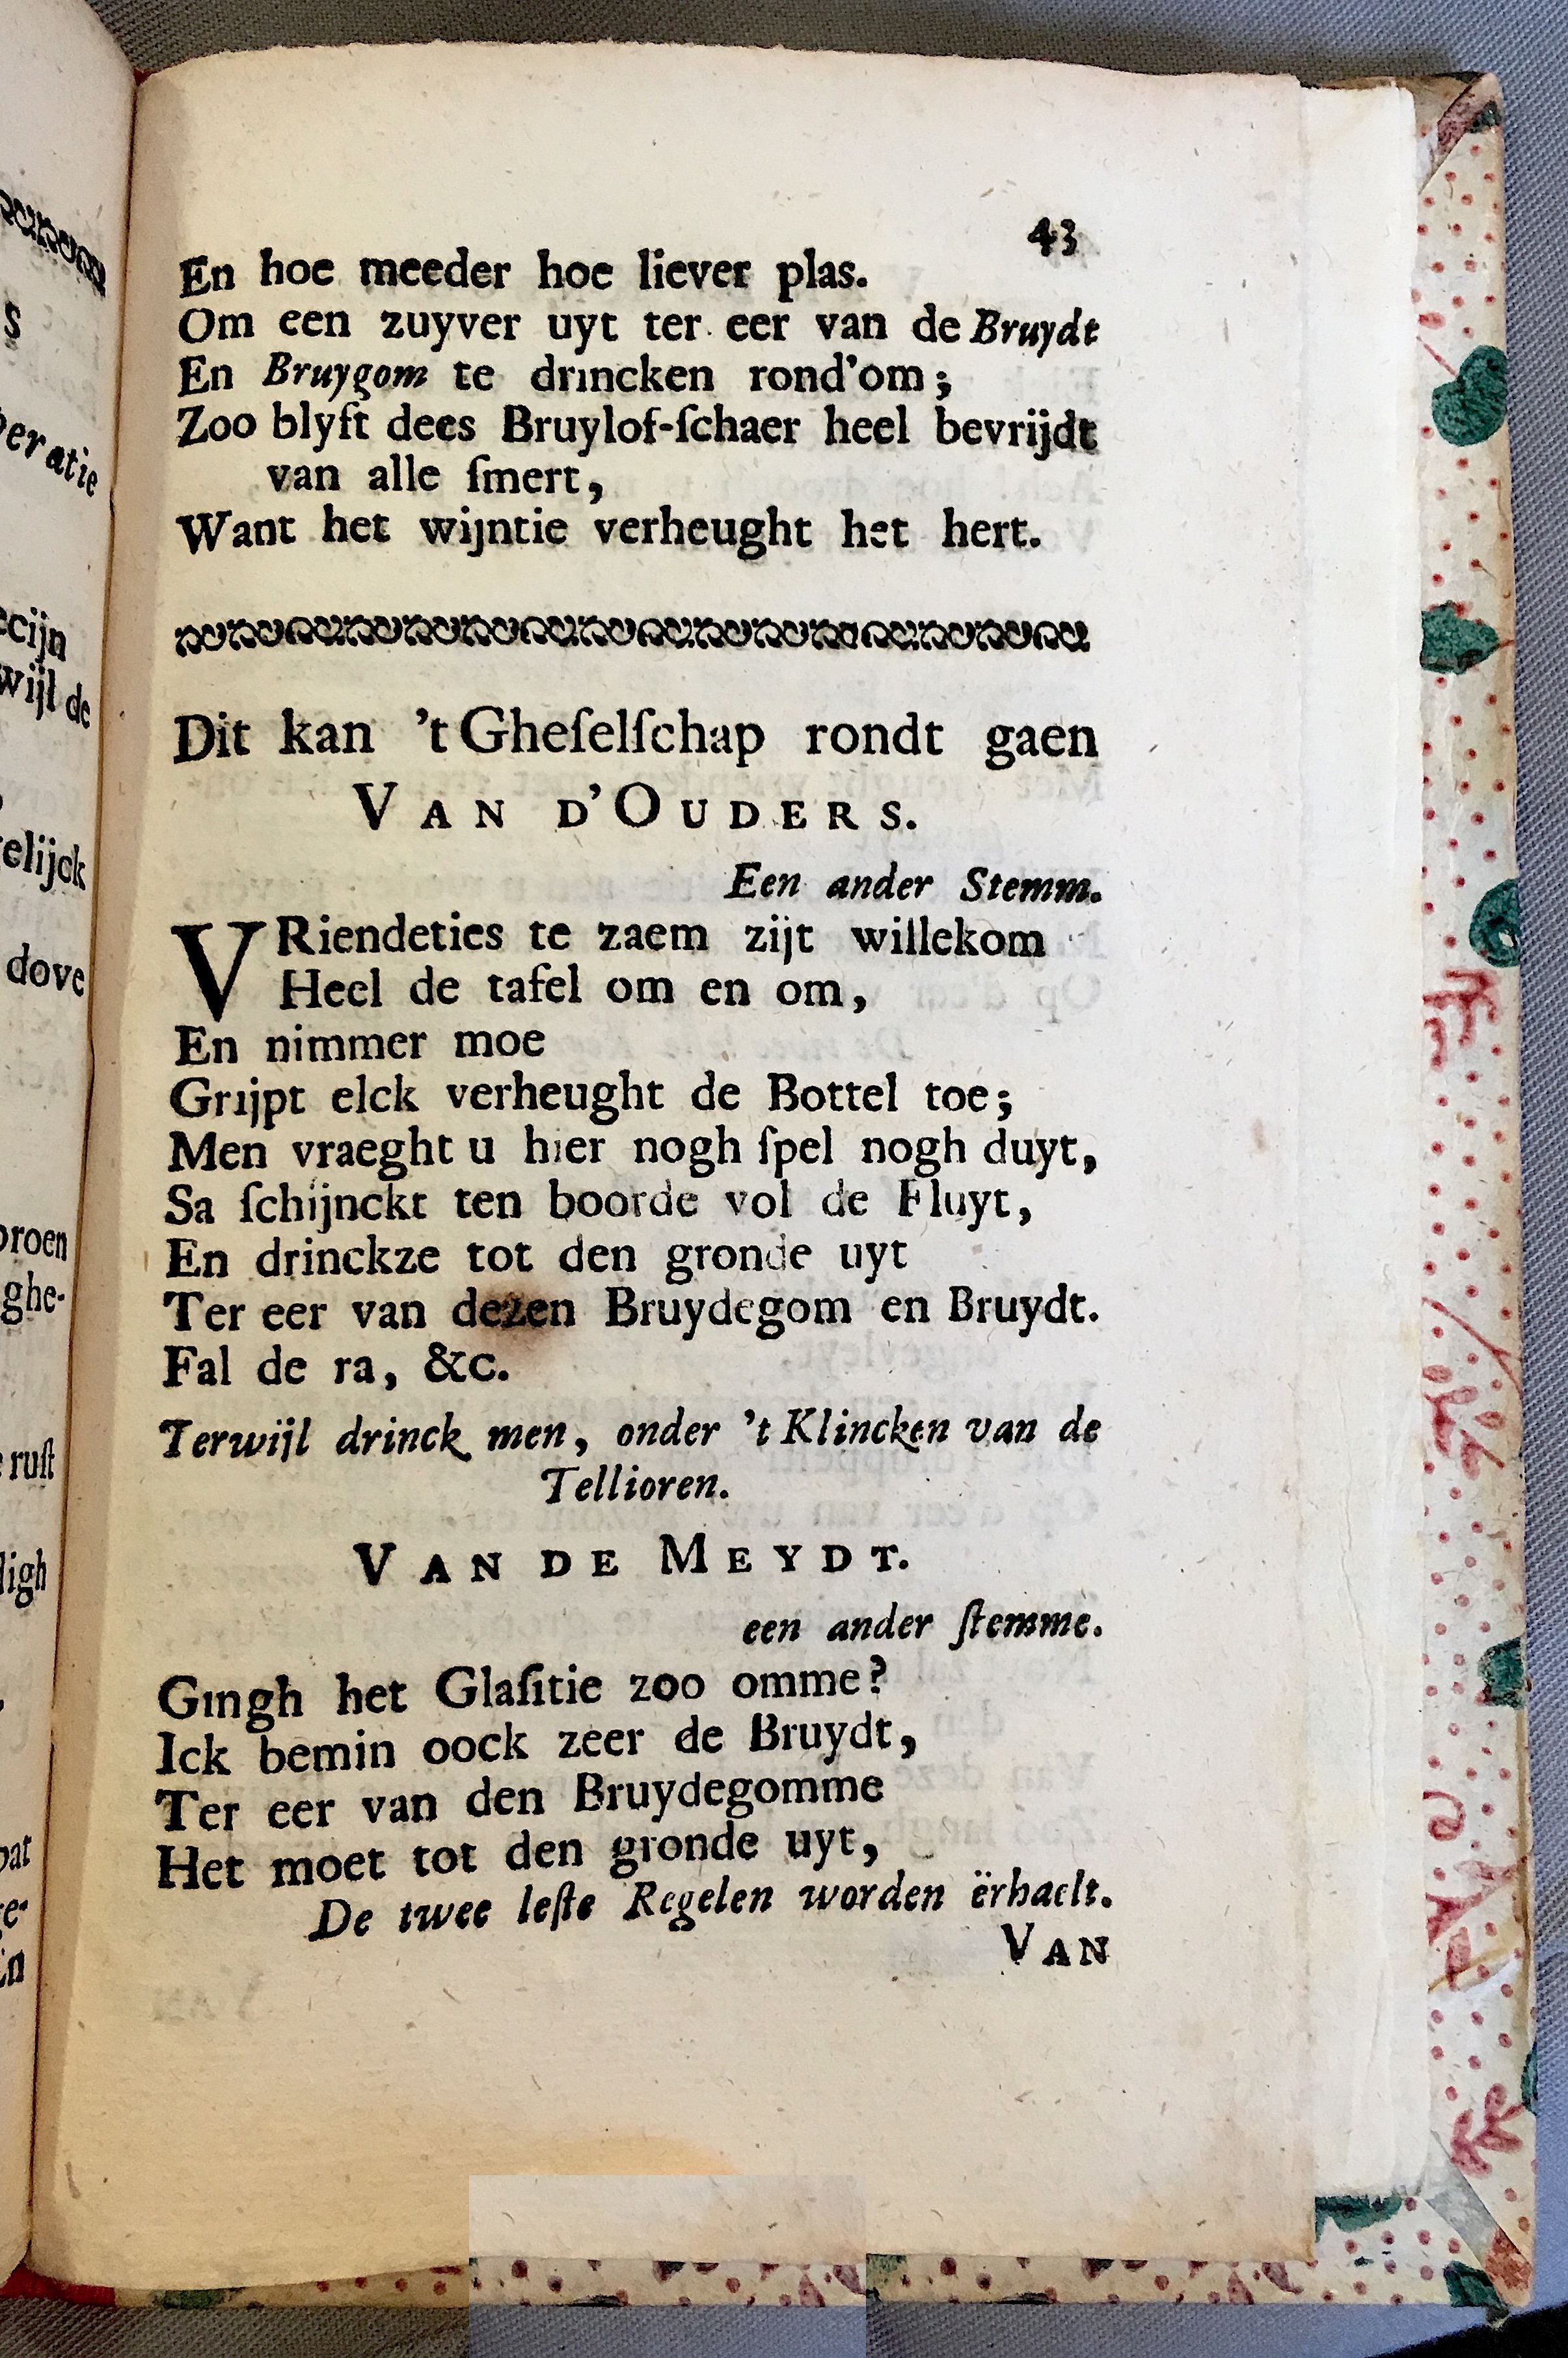 43
En hoe meeder hoe liever plas.
Om een zuyver uyt ter eer van de Bruydt
En Bruygom te drincken rond'om;
Zoo blyft dees Bruylof-ſchaer heel bevrijdt
van alle ſmert,
Want het wijntie verheught het hert.
Dit kan 't Gheſelſchap rondt gaen
VAN D'OUDERS.
Een ander Stemm.
VRiendeties te zaem zijt willekom
Heel de tafel om en om,
En nimmer moe
Grijpt elck verheught de Bottel toe;
Men vraeght u hier nogh ſpel nogh duyt,
Sa ſchijnckt ten boorde vol de Fluyt,
En drinckze tot den gronde uyt
Ter eer van dezen Bruydegom en Bruydt.
Fal de ra, &c.
Terwijl drinck men, onder 't Klincken van de
Tellioren.
VAN DE MEYDT.
een ander ſtemme.
Gingh het Glaſitie zoo omme?
Ick bemin oock zeer de Bruydt,
Ter eer van den Bruydegomme
Het moet tot den gronde uyt,
De twee leſte Regelen worden ërhaelt.
VAN
eratie
cijn
wijl de
elijck
dove
roen
ghe-
ruſt
ligh